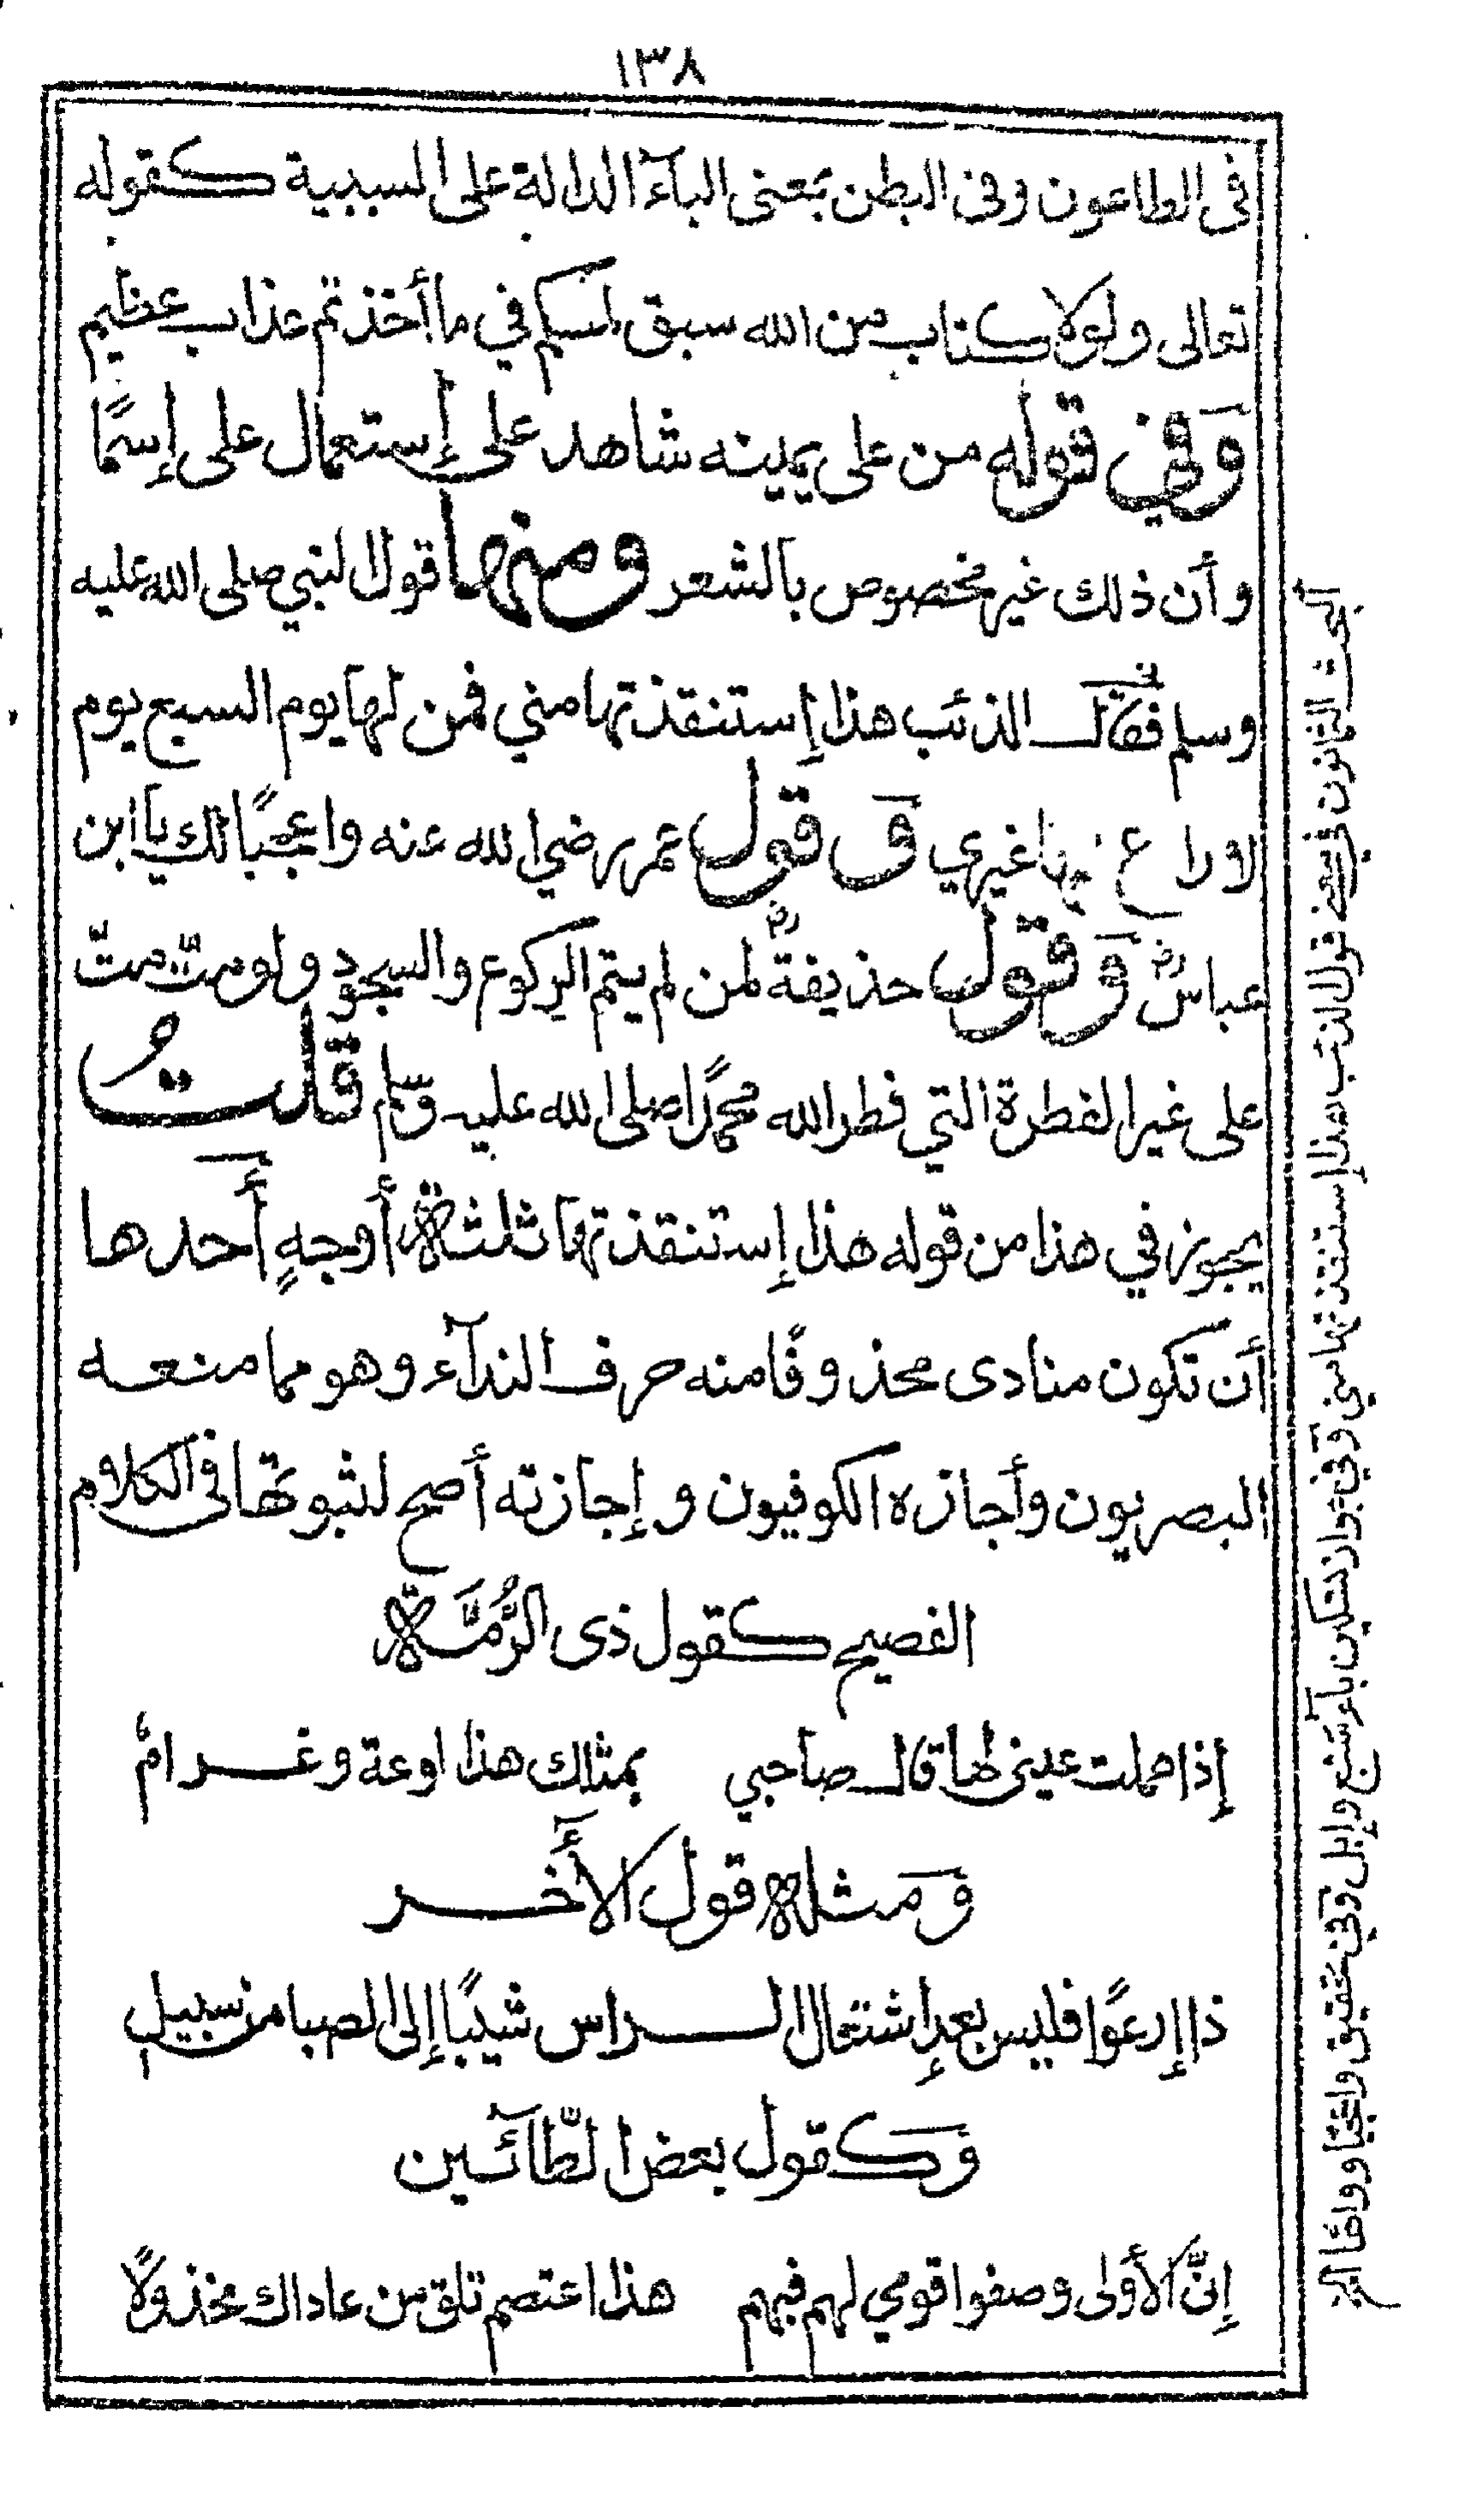 ١٣٨
فى الطاعون وفى البطن بمعنى البآء الدالة على السببية كقوله
تعالى ولولا كتاب من الله سبق لمسكم في ما أخذتم عذاب عظيم
وَفي قوله من على يمينه شاهد على إستعمال على إسمًا
وأن ذلك غير مخصوص بالشعر ومنها قول النبي صلى الله عليه
وسلم فقال الذئب هذا إستنقذتها مني فمن لها يوم السبع يوم
لا راع لها غيري وَ قول عمر رضي الله عنه واعجبًا لك يا ابن
عباس رض وَقول حذيفة رض لمن لم يتم الركوع والسجود ولو متّ متّ
على غير الفطرة التي فطر الله محمدًا صلى الله عليه وسلم قلت
يجوز في هذا من قوله هذا إستنقذتها ثلثة أوجهٍ أحدها
أن تكون منادى محذوفًا منه حرف الندآء وهو مما منعه
البصريون وأجازه الكوفيون وإجازته أصح لثبوتها فى الكلام
الفصيح كقول ذى الرُّمَّة
إذا هملت عينى لها قال صاحبي بمثلك هذا لوعة وغرامٌ
وَمثله قول الأخر
ذا إرعوًا فليس بعد إشتعال الراس شيبًا إلى الصبا من سبيل
وَكقول بعض الطّآئسين
إنّ الأولى وصفوا قومي لهم فبهم هذا اعتصم تلق من عاداك مخذولًا
البحث الثانون في قول الذئب هذا إستنقذتها مني وفي جواز تحقيق واعجبًا وواهًا الخ